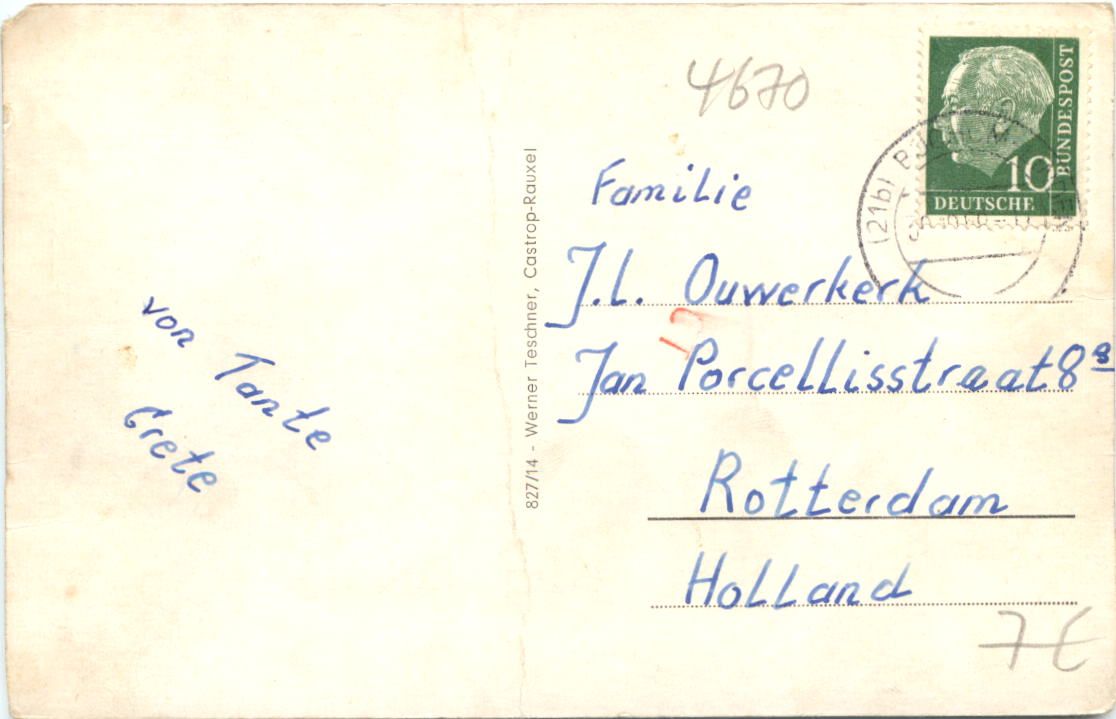 von Tante
Grete
827/14 - Werner Teschner, Castrop-Rauxel
4670
10
DEUTSCHE
BUNDESPOST
(21b)
Familie
J.L. Ouwerkerk
Jan Porcellisstraat 8ª
Rotterdam
Holland
7€